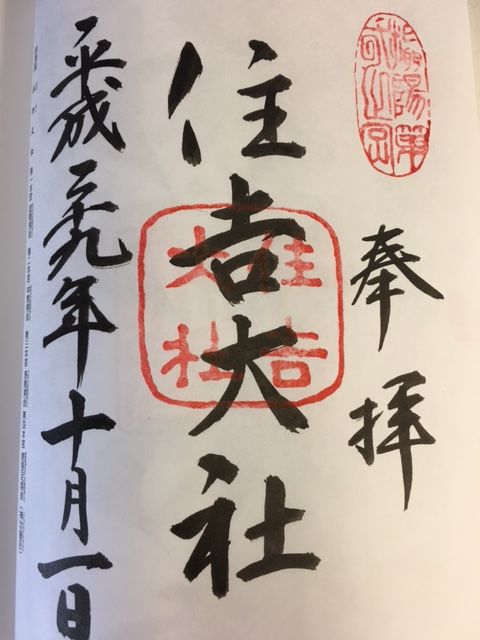 奉拝
住吉大社
住吉
大社
平成二十九年十月一日